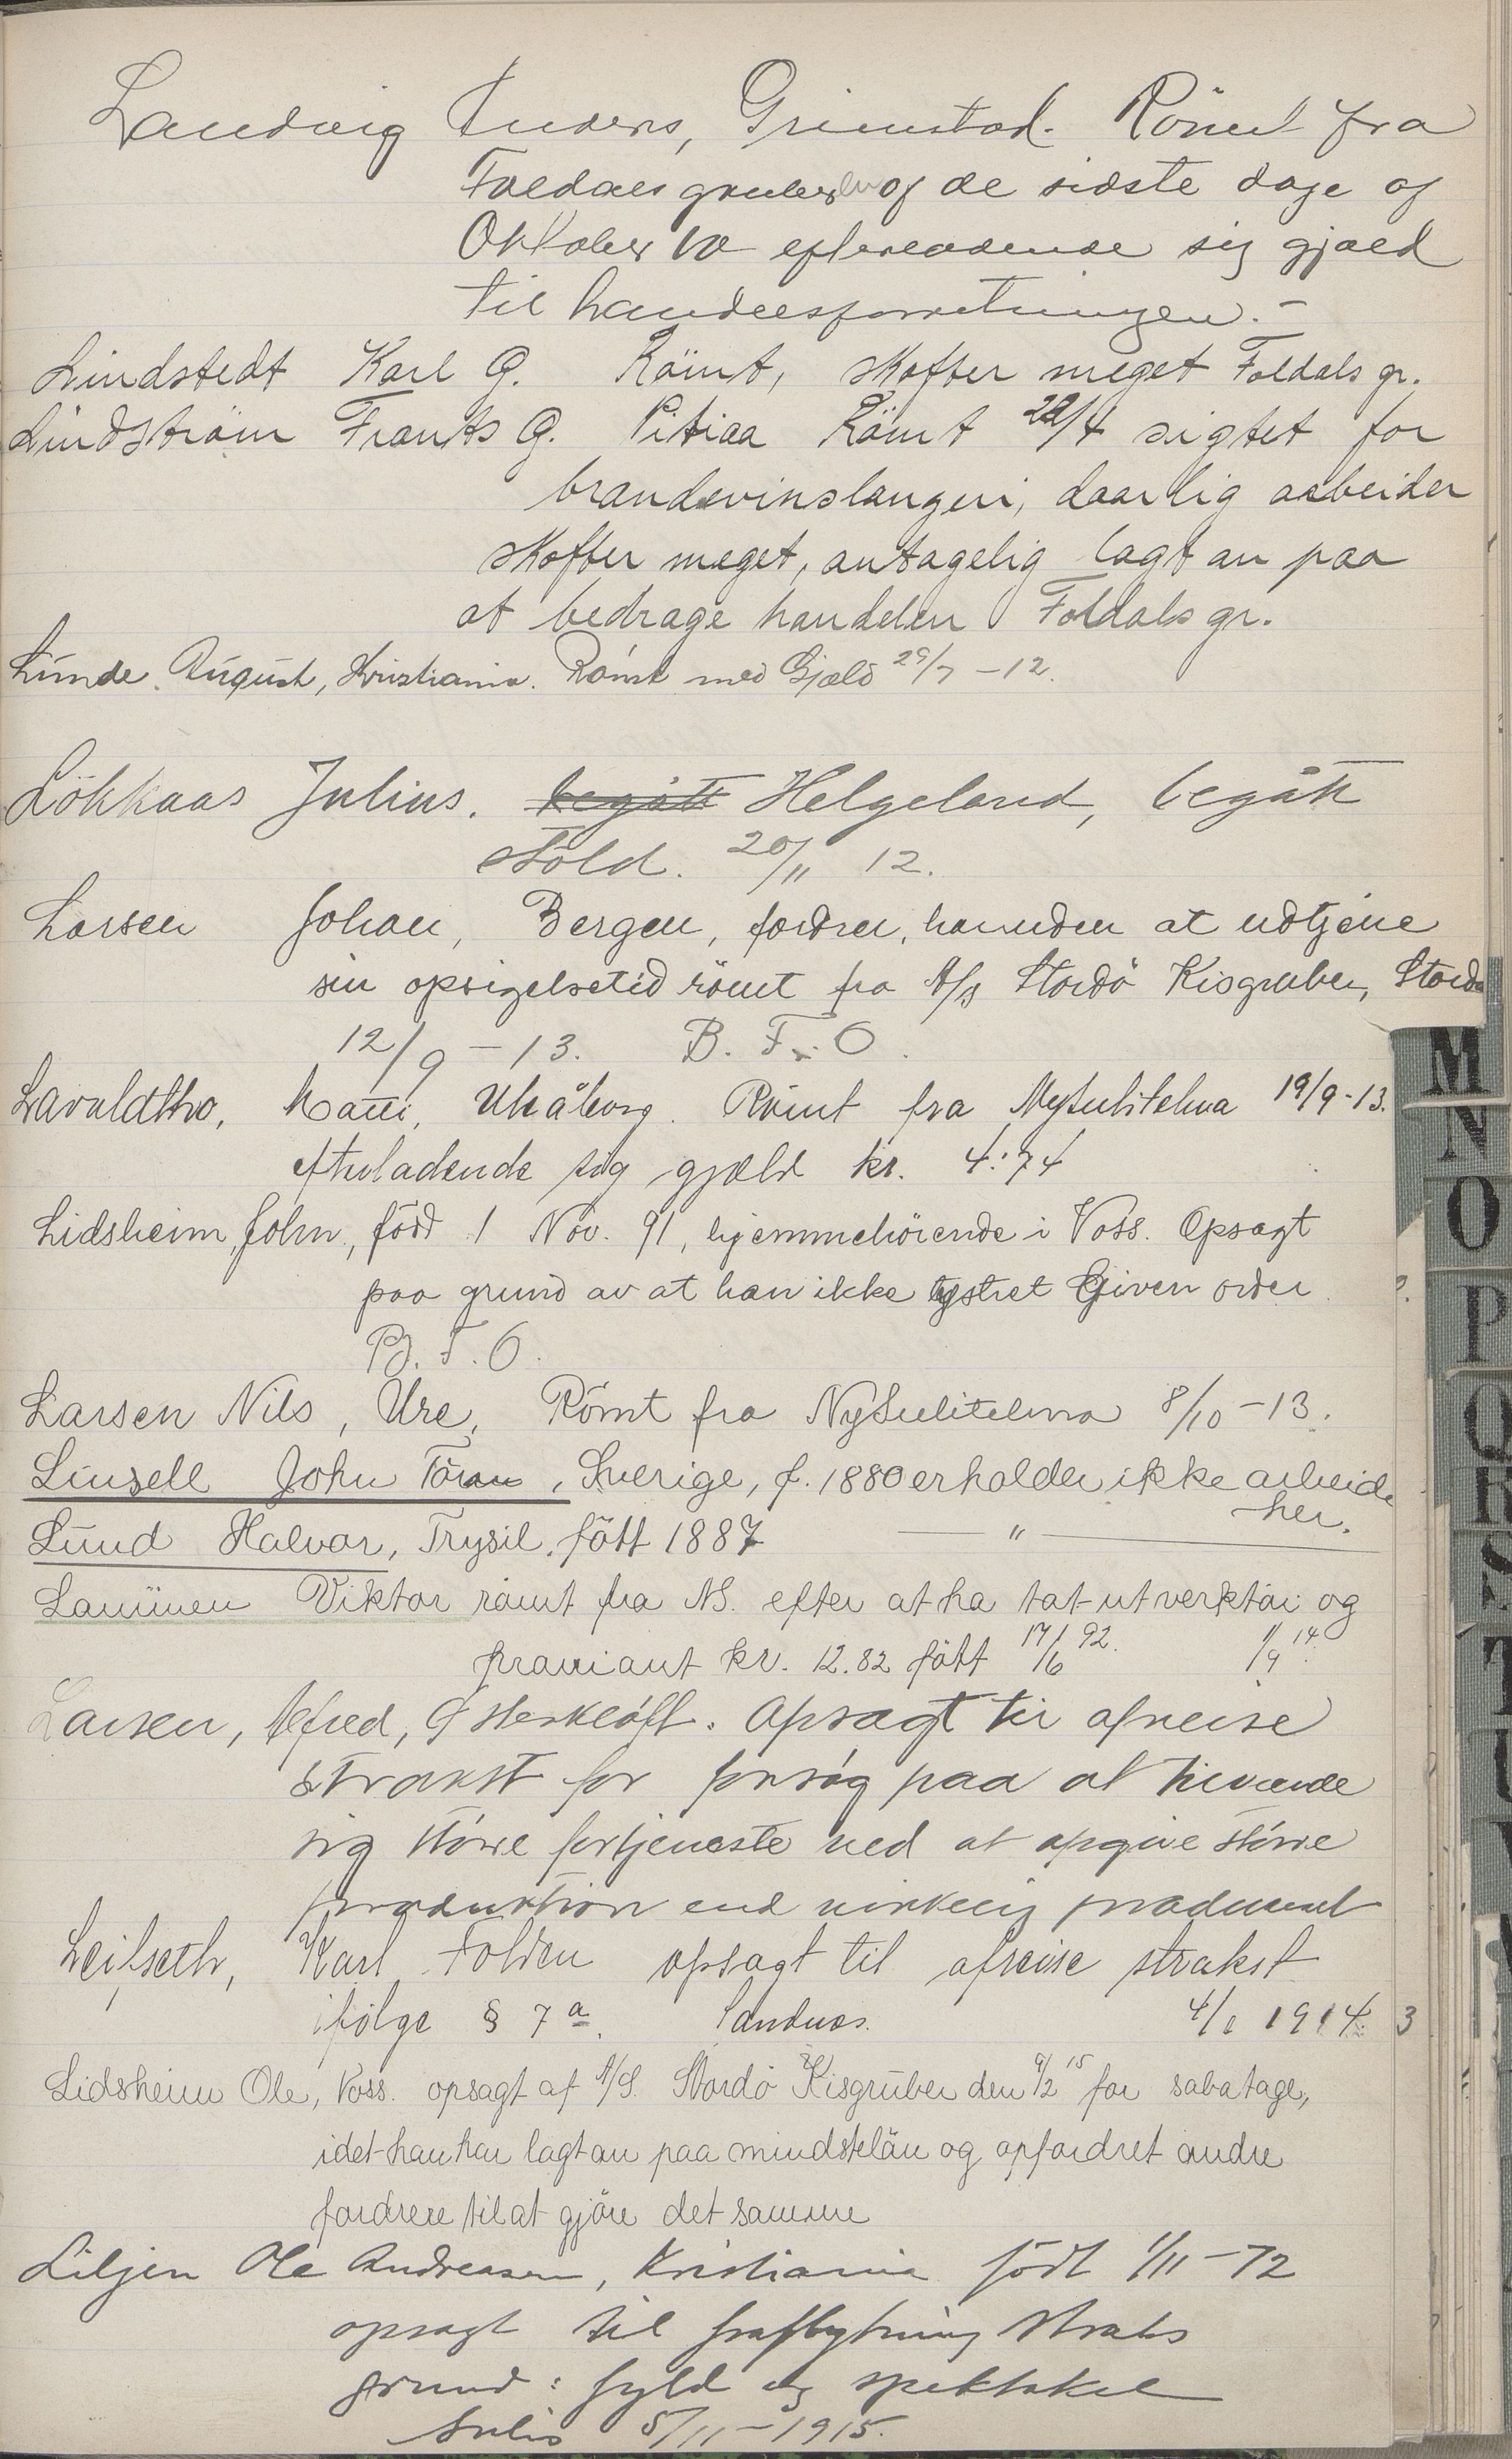 Landvig Anders, Grimstad. Römt fra
Foldals gruber af de sidste dage af
Oktober 10 efterladende sig gjæld
til handelsforretningen. –
Lindstedt Karl G. Römt, skofter meget Foldals gr.
Lindström Frants G. Pitiaa Römt 22/4 sigtet for
brandevinslangeri, daarlig arbeider
skofter meget, antagelig lagt an paa
at bedrage handelen Foldals gr.
Lunde August, Kristiania. Römt med Gjæld 29/7 – 12.
Lökkaas Julius. begått Helgeland, begått
stöld. 20/11 12.
Larsen Johan, Bergen, fordrer, hvorfor at udtjene
sin opsigelsetid römt fra A/S Stordö Kisgruber, Stordö
12/9 – 13. B. F. O.
Lavuldtho, Matti, Uleåborg. Römt fra NySulitelma 19/9-13.
efterladende sig gjæld kr. 4:74
Lidsheim, John, född 1 Nov. 91, hjemmehörende i Voss. Opsagt
paa grund av at han ikke lystret Given order
B. F. O.
Larsen Nils, Ure, Römt fra NySulitelma 8/10 – 13.
Linsell John Göran, Sverige, f. 1880 erholder ikke arbeide
her.
Lund Halvar, Trysil, fött 1887 — " —
Laminen Viktor römt fra NS. efter at ha tat ut verktöi og
proviant kr. 12.82 fött 17/6 92. 1/9 14.
Larsen, Alfred, Österkløft. Opsagt til afreise
strakst for forsög paa at tilvende
sig större fortjeneste ved at opgive större
produktion end virkelig producert
Leifseth, Karl Folden opsagt til afreise strakst
ifölge § 7 a. Sandnes. 4/6 1914 3
Lidsheim Ole, Voss. opsagt af A/S. Stordö Kisgruber den 9/2 15 for sabatage,
idet han har lagt an paa mindstelön og opfordret andre
fordrere til at gjöre det samme
Liljen Ole Andreasen, Kristiania födt 1/11 – 72
opsagt til fraflytning straks
grund: fyld og spektakel
Sulis 5/11 – 1915.
M
N
O
P
Q
R
S
T
U